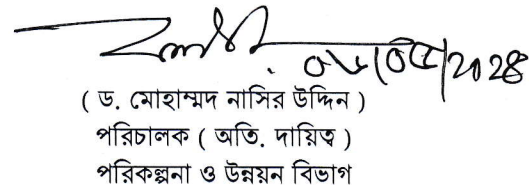 ( ড. মোহাম্মদ নাসির উদ্দিন )
পরিচালক ( অতি. দায়িত্ব )
পরিকল্পনা ও উন্নয়ন বিভাগ